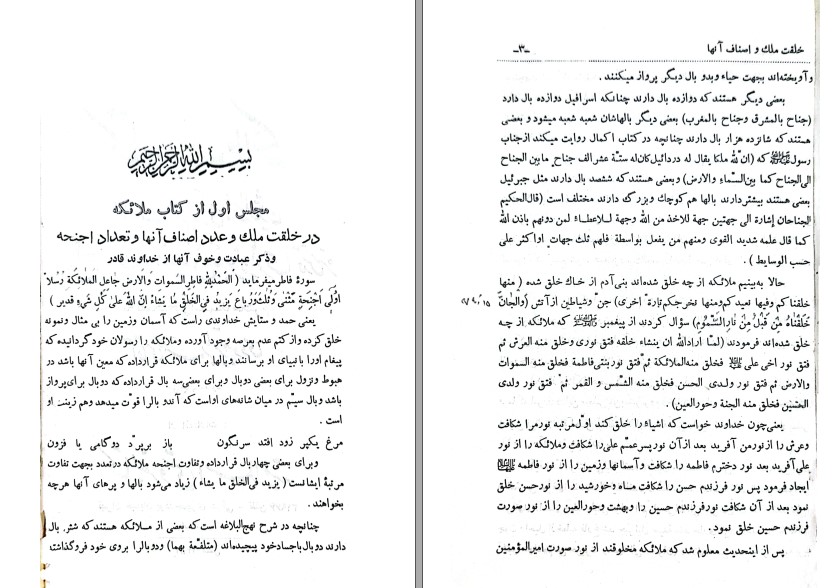 بسم الله الرحمن الرحیم
مجلس اول از کتاب ملائکه
در خلقت ملک و عدد اصناف آنها و تعداد اجنحه
وذکر عبادت وخوف آنها از خداوند قادر
سورهٔ فاطر میفرماید ( اَلْحَمْدُللهِ فاطِرِالسَّمواتِ وَالارضِ جاعِلِ المَلائکَةِ رُسُلاً
اُولی اَجْنِحَةٍ مَثْنی وَثُلٰثَ وَرُباعَ یَزیدُ فِی الخَلْقِ ما یَشاءُ اِنَّ اللهَ عَلیٰ کُلِّ شَیءٍ قدیر )
یعنی حمد و ستایش خداوندی راست که آسمان وزمین را بی مثال ونمونه
خلق کرده وازکتم عدم بعرصه وجود آورده وملائکه را رسولان خود گردانیده که
پیغام اورا بانبیای او برسانند وبالها برای ملائکه قرارداده که معین آنها باشد در
هبوط ونزول برای بعضی دوبال وبرای بعضی سه بال قرارداده که دوبال برای پرواز
باشد وبال سیّم در میان شانه‌های اواست که آندو بال را قوّت میدهد وهم زینت او
است .
مرغ یکپر زود افتد سرنگون باز برپرّد دوگامی یا فزون
وبرای بعضی چهاربال قرارداده وتفاوت اجنحه ملائکه در تعدد بجهت تفاوت
مرتبهٔ ایشانست ( یزید فی‌الخلق ما یشاء ) زیاد می‌شود بالها و پرهای آنها هرچه
بخواهند .
چنانچه در شرح نهج‌البلاغه است که بعضی از ملائکه هستند که شش بال
دارند دوبال باجساد خود پیچیده‌اند (متلفّعة بهما) ودوبالرا بروی خود فروگذاشته
خلقت ملك و اصناف آنها -٣-
وآویخته‌اند بجهت حیاء وبدو بال دیگر پرواز میکنند .
بعضی دیگر هستند که دوازده بال دارند چنانکه اسرافیل دوازده بال دارد
(جناح بالمشرق وجناح بالمغرب) بعضی دیگر بالهاشان شعبه شعبه میشود و بعضی
هستند که شانزده هزار بال دارند چنانچه در کتاب اکمال روایت میکند از جناب
رسول ﷺ که (ان لله ملکا یقال له دردائیل کان له ستّة عشر الف جناح ما بین الجناح
الی الجناح کما بین السّماء والارض) وبعضی هستند که ششصد بال دارند مثل جبرئیل
بعضی هستند بیشتر دارند بالها هم کوچك وبزرگ دارند مختلف است (قال الحکیم
الجناحان إشارة الی جهتین جهة للاخذ من الله وجهة للاعطاء لمن دونهم باذن الله
کما قال علمه شدید القوی ومنهم من یفعل بواسطة فلهم ثلث جهات او اکثر علی
حسب الوسایط ) .
حالا به‌بینیم ملائکه از چه خلق شده‌اند بنی‌آدم از خاك خلق شده ( منها
خلقناکم وفیها نعیدکم ومنها نخرجکم تارة اخری) جن وشیاطین از آتش (وَالجانَّ
خَلَقْناهُ مِنْ قَبْلُ مِنْ نارِ السَّمُومِ) سؤال کردند از پیغمبر ﷺ که ملائکه از چه
خلق شده‌اند فرمودند (لمّا اراد الله ان ینشاء خلقه فتق نوری وخلق منه العرش ثم
فتق نور اخی علی علیه‌السلام فخلق منه الملائکة ثم فتق نور بنتی فاطمة فخلق منه السموات
والارض ثم فتق نور ولدی الحسن فخلق منه الشّمس و القمر ثم فتق نور ولدی
الحسین فخلق منه الجنة وحورالعین) .
یعنی چون خداوند خواست که اشیاء را خلق کند اوّل مرتبه نور مرا شکافت
وعرش را از نور من آفرید بعد از آن نور پسر عمّم علی را شکافت وملائکه را از نور
علی آفرید بعد نور دخترم فاطمه را شکافت وآسمانها وزمین را از نور فاطمه
ایجاد فرمود پس نور فرزندم حسن را شکافت ماه وخورشید را از نور حسن خلق
نمود بعد از آن شکافت نور فرزندم حسین را وبهشت وحورالعین را از نور صورت
فرزندم حسین خلق نمود .
پس از اینحدیث معلوم شد که ملائکه مخلوقند از نور صورت امیرالمؤمنین